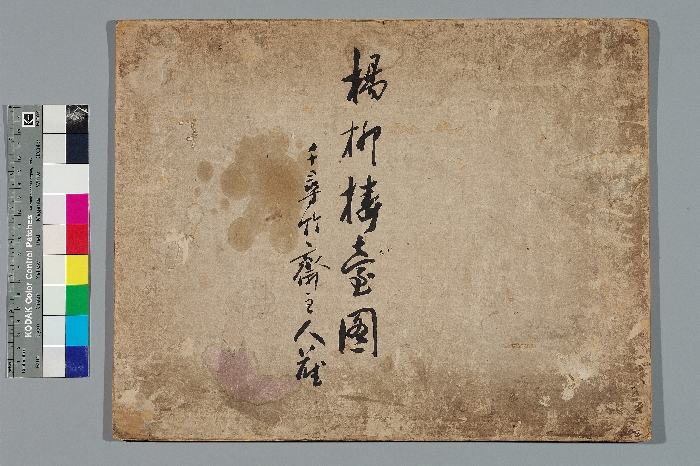 楊柳樓臺圖
千尋竹齋主人藏
KODAK Color Control Patches